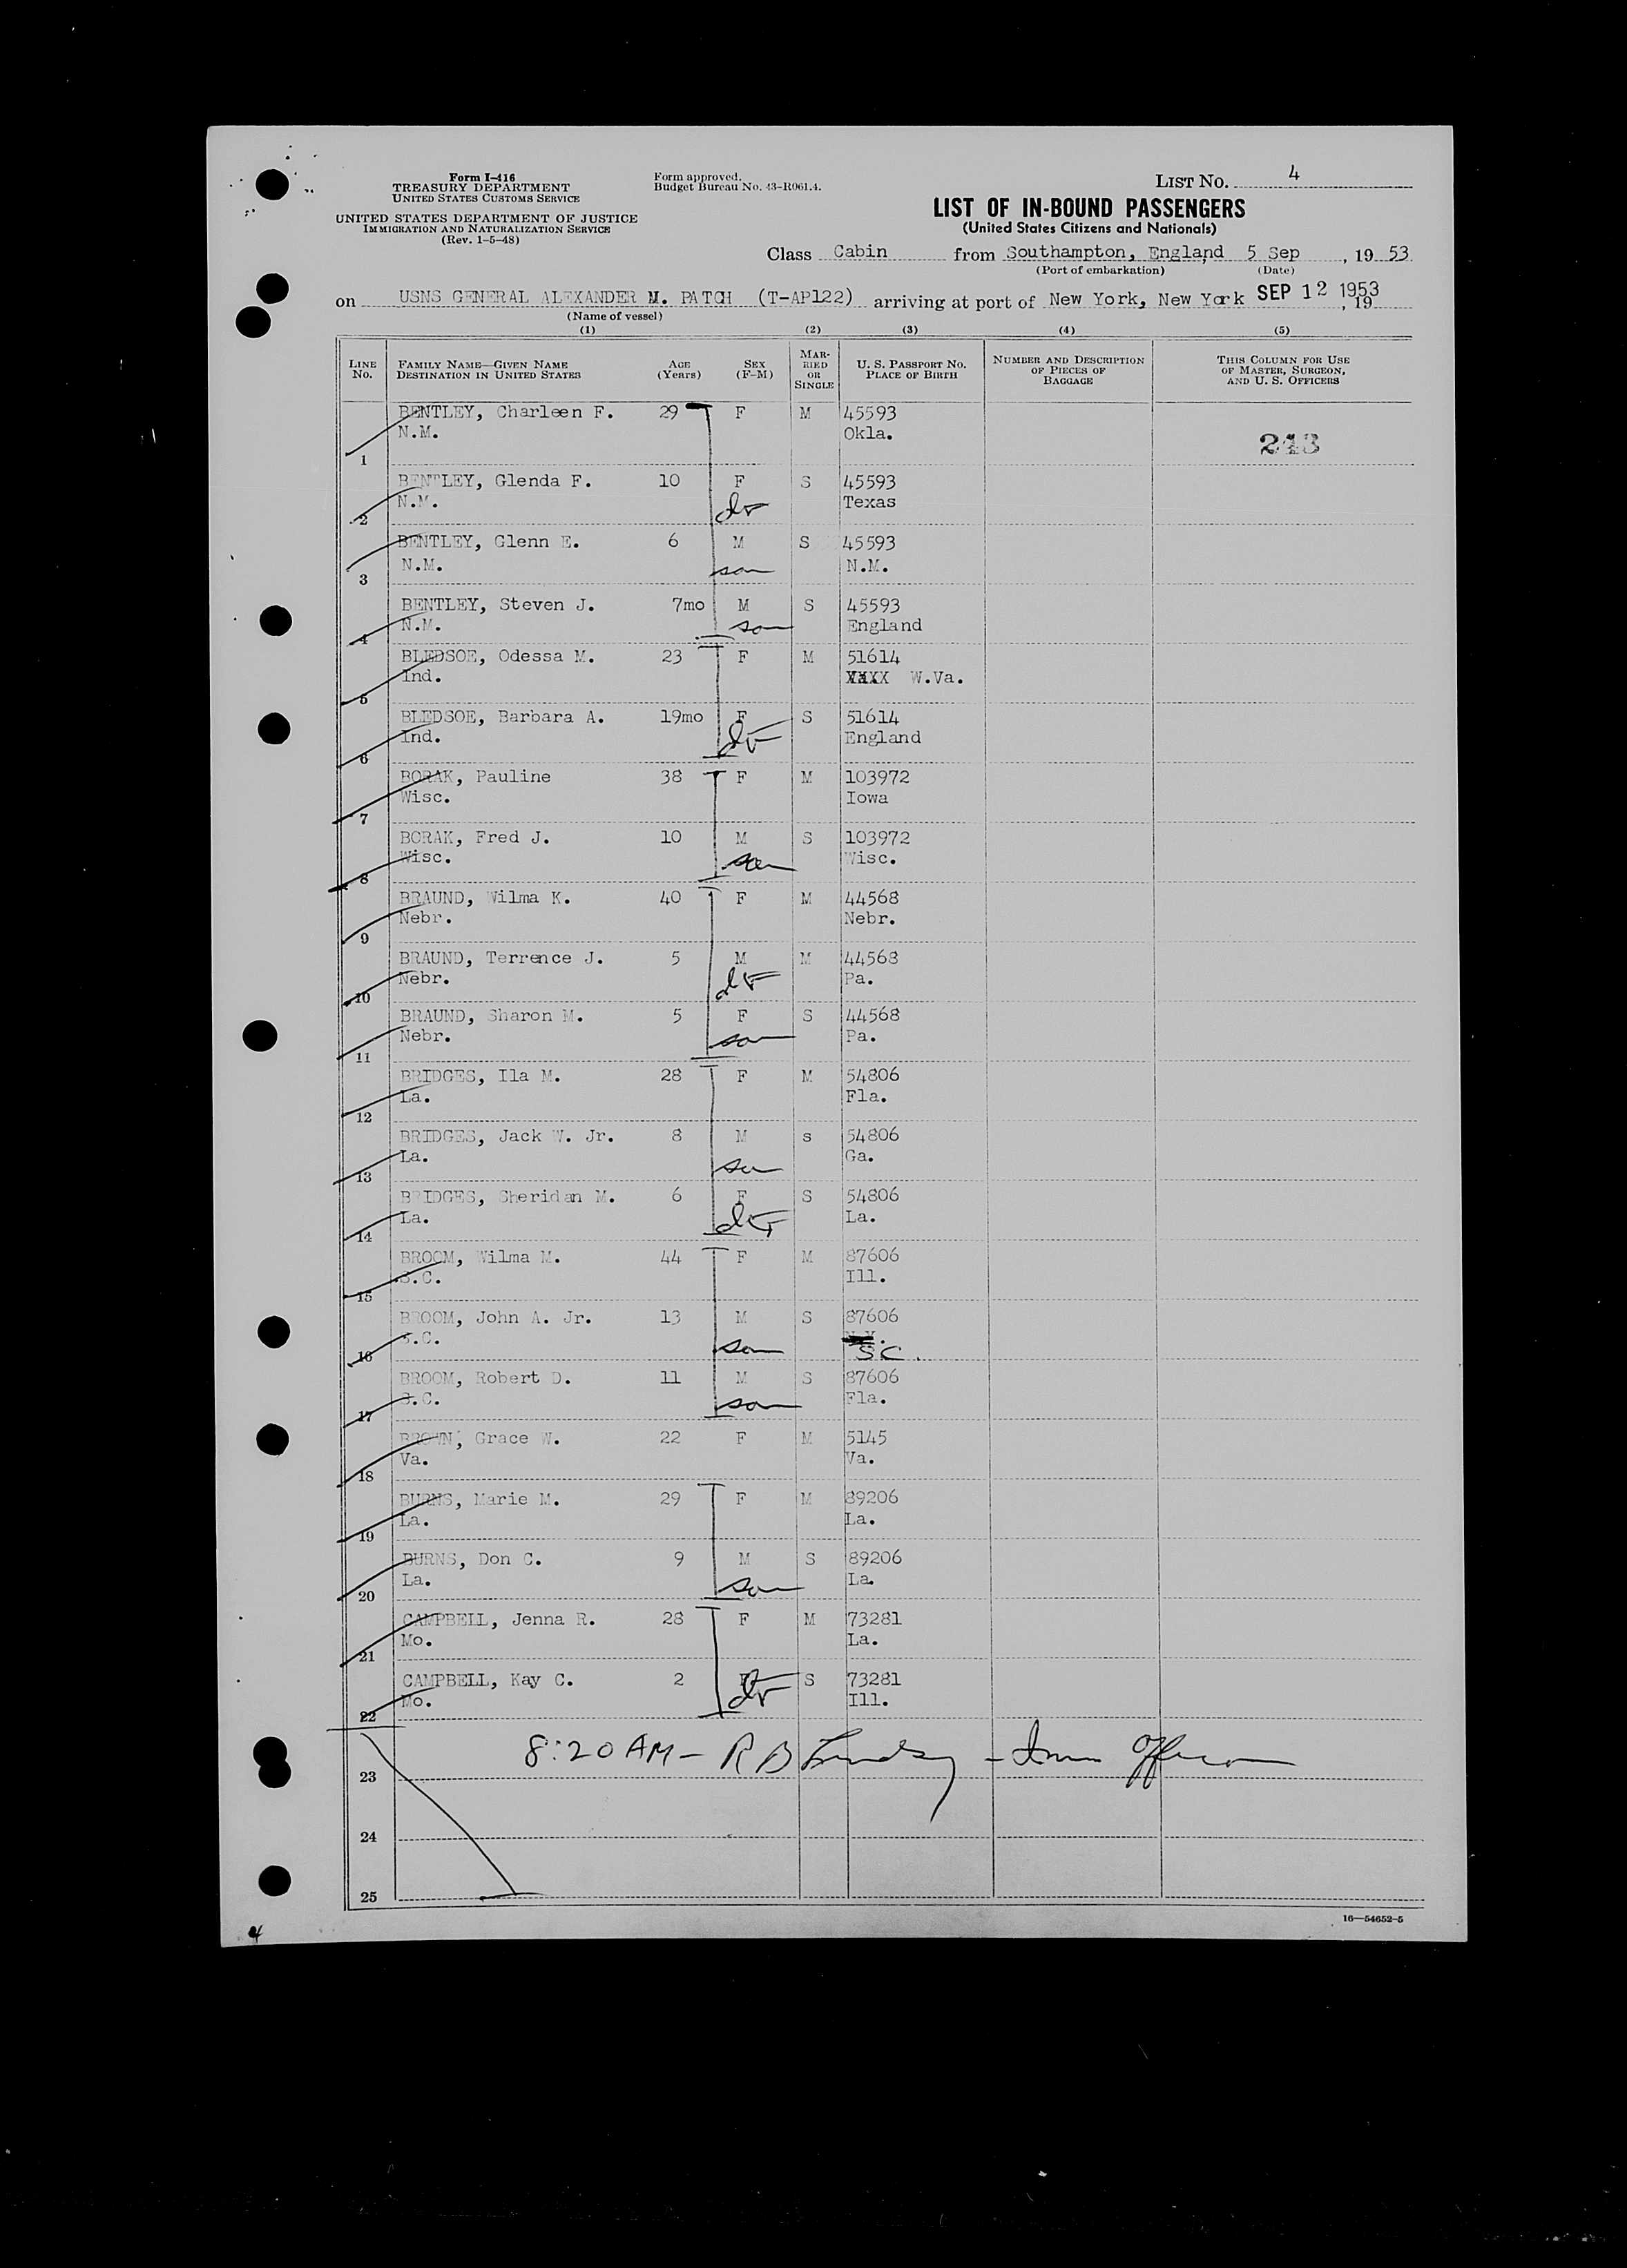 Form I-416
TREASURY DEPARTMENT
UNITED STATES CUSTOMS SERVICE
UNITED STATES DEPARTMENT OF JUSTICE
IMMIGRATION AND NATURALIZATION SERVICE
(Rev. 1-5-48)
Form approved.
Budget Bureau No. 43-R061.4.
LIST No. 4
LIST OF IN-BOUND PASSENGERS
(United States Citizens and Nationals)
Class Cabin from Southampton, England 5 Sep, 19 53
(Port of embarkation) (Date)
on USNS GENERAL ALEXANDER M. PATCH (T-AP122) arriving at port of New York, New York SEP 12 1953, 19
(Name of vessel)
(1) (2) (3) (4) (5)
LINE No. FAMILY NAME—GIVEN NAME DESTINATION IN UNITED STATES AGE (Years) SEX (F-M) MARRIED OR SINGLE U. S. PASSPORT No. PLACE OF BIRTH NUMBER AND DESCRIPTION OF PIECES OF BAGGAGE THIS COLUMN FOR USE OF MASTER, SURGEON, AND U. S. OFFICERS
BENTLEY, Charleen F. 29 F M 45593
N.M. Okla. 243
1
BENTLEY, Glenda F. 10 F S 45593
N.M. dr Texas
2
BENTLEY, Glenn E. 6 M S 45593
N.M. son N.M.
3
BENTLEY, Steven J. 7mo M S 45593
N.M. son England
4
BLEDSOE, Odessa M. 23 F M 51614
Ind. XXXX W.Va.
5
BLEDSOE, Barbara A. 19mo F S 51614
Ind. dr England
6
BORAK, Pauline 38 F M 103972
Wisc. Iowa
7
BORAK, Fred J. 10 M S 103972
Wisc. son Wisc.
8
BRAUND, Wilma K. 40 F M 44568
Nebr. Nebr.
9
BRAUND, Terrence J. 5 M M 44568
Nebr. dr Pa.
10
BRAUND, Sharon M. 5 F S 44568
Nebr. son Pa.
11
BRIDGES, Ila M. 28 F M 54806
La. Fla.
12
BRIDGES, Jack W. Jr. 8 M s 54806
La. son Ga.
13
BRIDGES, Sheridan M. 6 F S 54806
La. dr La.
14
BROOM, Wilma M. 44 F M 87606
S.C. Ill.
15
BROOM, John A. Jr. 13 M S 87606
S.C. son SC.
16
BROOM, Robert D. 11 M S 87606
S.C. son Fla.
17
BROWN, Grace W. 22 F M 5145
Va. Va.
18
BURNS, Marie M. 29 F M 89206
La. La.
19
BURNS, Don C. 9 M S 89206
La. son La.
20
CAMPBELL, Jenna R. 28 F M 73281
Mo. La.
21
CAMPBELL, Kay C. 2 F S 73281
Mo. dr Ill.
22
8:20 AM - R B - Imm Officer
23
24
25
16—54652-5
4